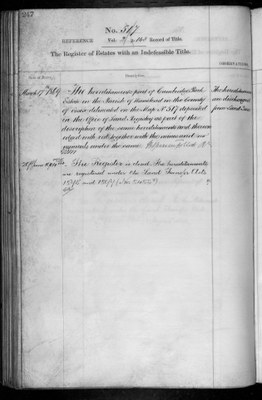 247
No. 517
REFERENCE Vol. Record of Title.
The Register of Estates with an Indefeasible Title.
Date of Entry. Description. OBSERVATIONS.
March 17 1869 The hereditaments part of Cambridge Park
Estate in the Parish of Twickenham in the County
of Middlesex delineated on the Map No. 517 deposited
in the Office of Land Registry as part of the
description of the same hereditaments and thereon
edged with red together with the mines and
minerals under the same
The hereditaments
are discharged
from Land Tax
The Register is closed. The hereditaments
are registered under the Land Transfer Acts
1875 and 1897